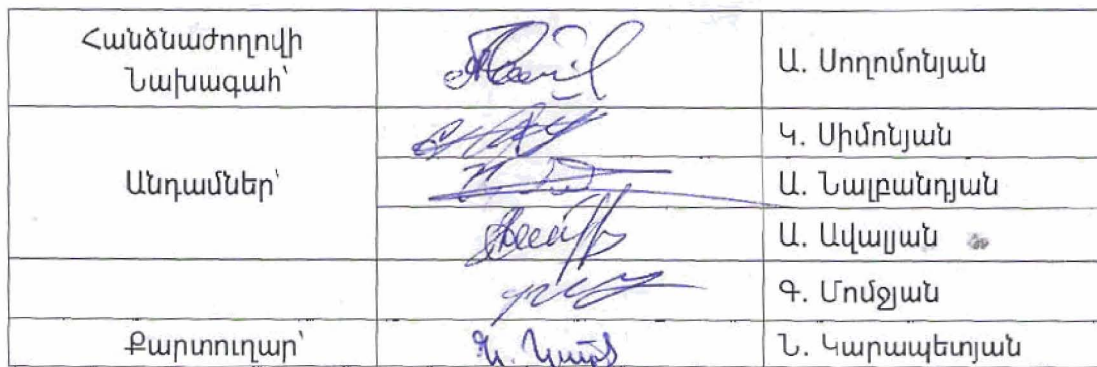 Հանձնաժողովի
Նախագահ՝
Ա. Սողոմոնյան
Կ. Սիմոնյան
Անդամներ՝
Ա. Նալբանդյան
Ա. Ավալյան
Գ. Մոմջյան
Քարտուղար՝
Ն. Կարապետյան